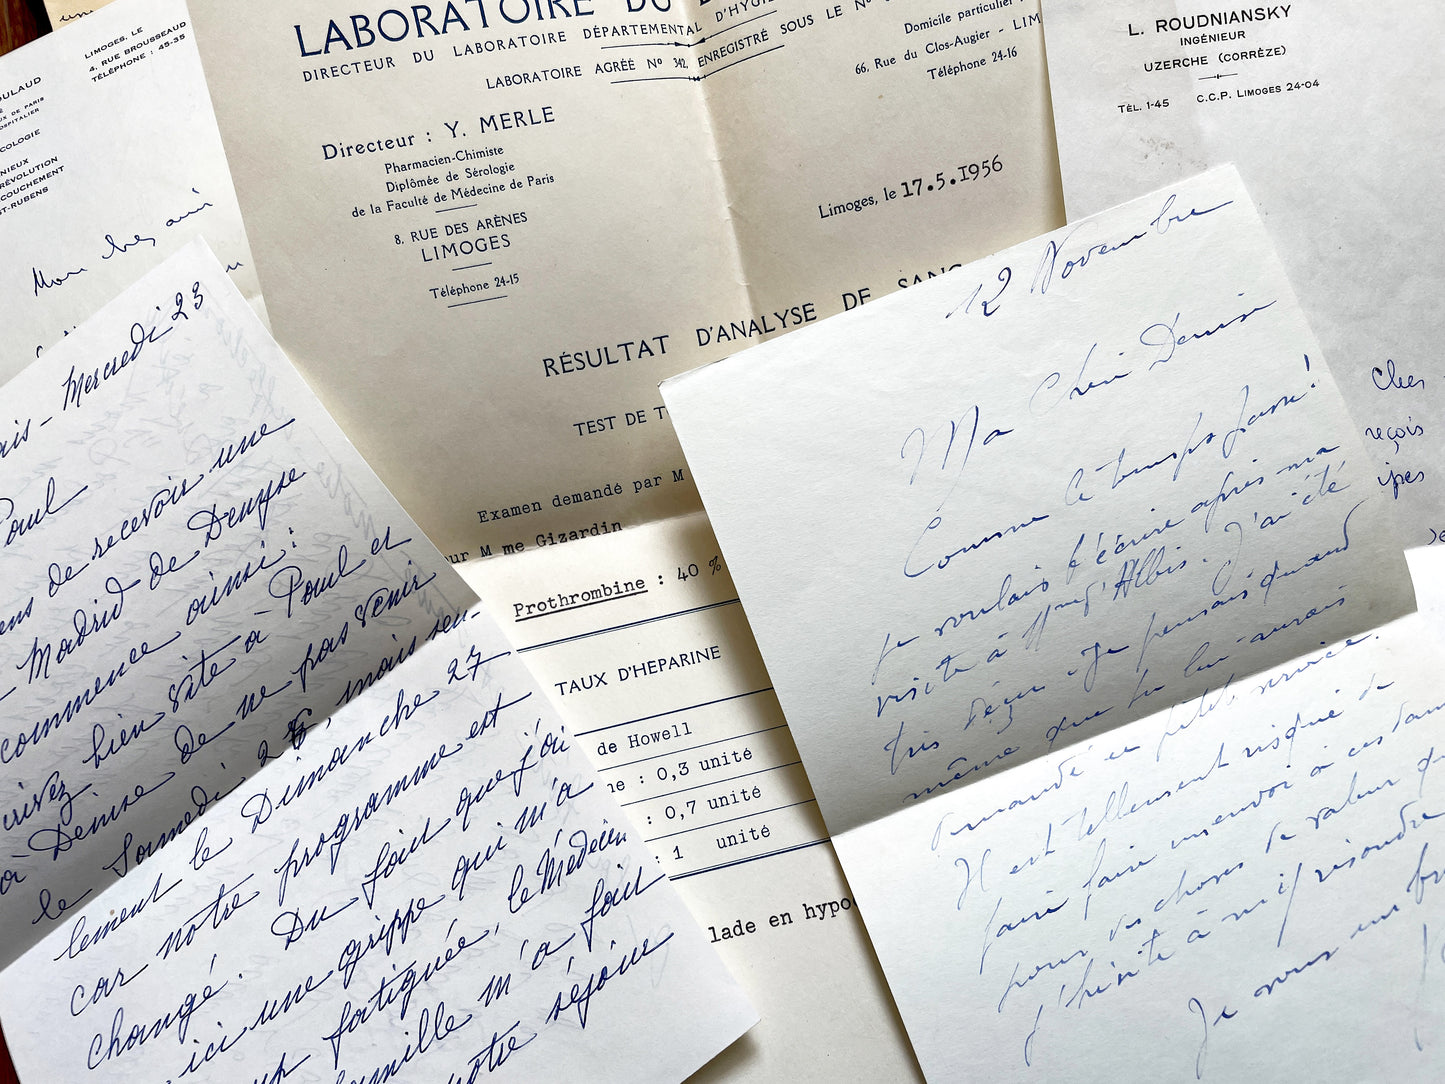 LIMOGES, LE
4, RUE BROUSSEAUD
TÉLÉPHONE : 45-35
OULAUD
UX DE PARIS
OSPITALIER
COLOGIE
NIEUX
RÉVOLUTION
COUCHEMENT
ST-RUBENS
Mon
ami
LABORATOIRE DU
DIRECTEUR DU LABORATOIRE DÉPARTEMENTAL D'HYGI
LABORATOIRE AGRÉÉ Nº 342, ENREGISTRÉ SOUS LE Nº
Domicile particulier
66, Rue du Clos-Augier - LIM
Téléphone 24-16
Directeur : Y. MERLE
Pharmacien-Chimiste
Diplômée de Sérologie
de la Faculté de Médecine de Paris
8, RUE DES ARÈNES
LIMOGES
Téléphone 24-15
Limoges, le 17.5.1956
RÉSULTAT D'ANALYSE DE SANG
TEST DE T
Examen demandé par M
ur M me Gizardin
Prothrombine : 40 %
TAUX D'HEPARINE
de Howell
ne : 0,3 unité
: 0,7 unité
: 1 unité
lade en hypo
L. ROUDNIANSKY
INGÉNIEUR
UZERCHE (CORRÈZE)
TÉL. 1-45 C.C.P. LIMOGES 24-04
Cher
reçois
ipes
ris - Mercredi 23
Paul
ens de recevoir une
Madrid de Denyse
commence ainsi :
crivez bien vite à Paul et
à Denise de ne pas venir
le Samedi 26, mais seu-
lement le Dimanche 27
car notre programme est
changé. Du fait que j'ai
ici une grippe qui m'a
up fatiguée, le Médecin
famille m'a fait
notre séjour
12 Novembre
Ma Chère Denise
Comme le temps passe !
je voulais t'écrire après ma
visite à d'Albis. J'ai été
très déçue. Je pensais quand
même que tu lui aurais
demandé ce petit service.
Il est tellement risqué de
faire faire un envoi à
pour des choses de valeur
j'hésite à m'y résoudre
Je vous